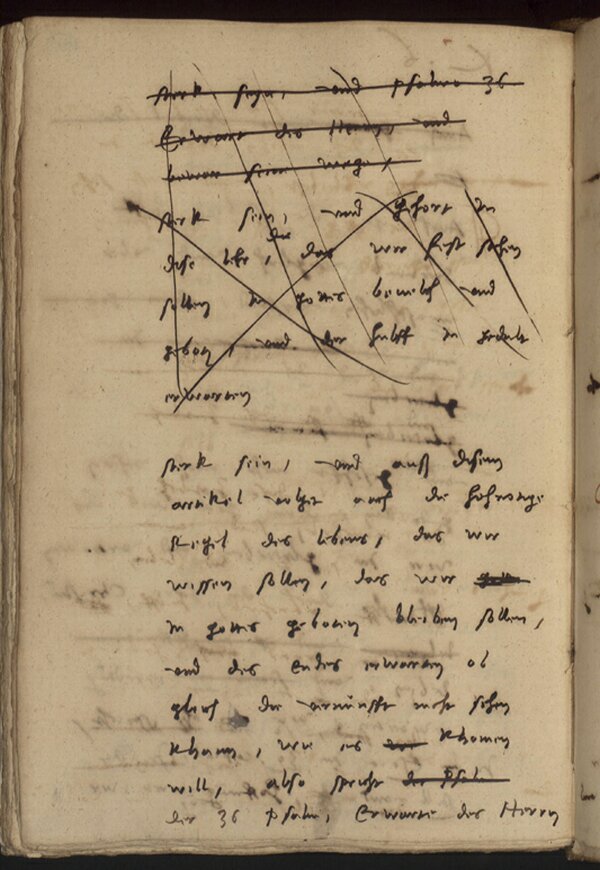 sterk sein, und psalmo 36
Erwart des Herrn, und
bewar sein wege,
sterk sein, und gehort in
dise lehr, das wir fest stehen
sollen in gottes bevelh und
gebott, und der hulff in gedult
erwarten
sterk sein, und auß disem
artikel volget auch die
Regel des lebens, das wir
wissen sollen, das wir
in gottes geboten bleiben sollen,
und des endes erwarten ob
gleich die vernunfft nicht sehen
khann, wie es khomen
will, also spricht der Psalm
der 36 psalm, Erwarte des Herrn